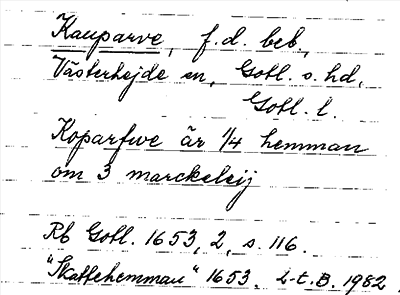 Kauparve, f.d. beb.,
Västerhejde sn, Gotl. s. hd,
Gotl. l.
Koparfwe är 1/4 hemman
om 3 marckeleij
Rb Gotl. 1653, 2, s. 116.
"Skattehemman" 1653. L-t. B. 1982.